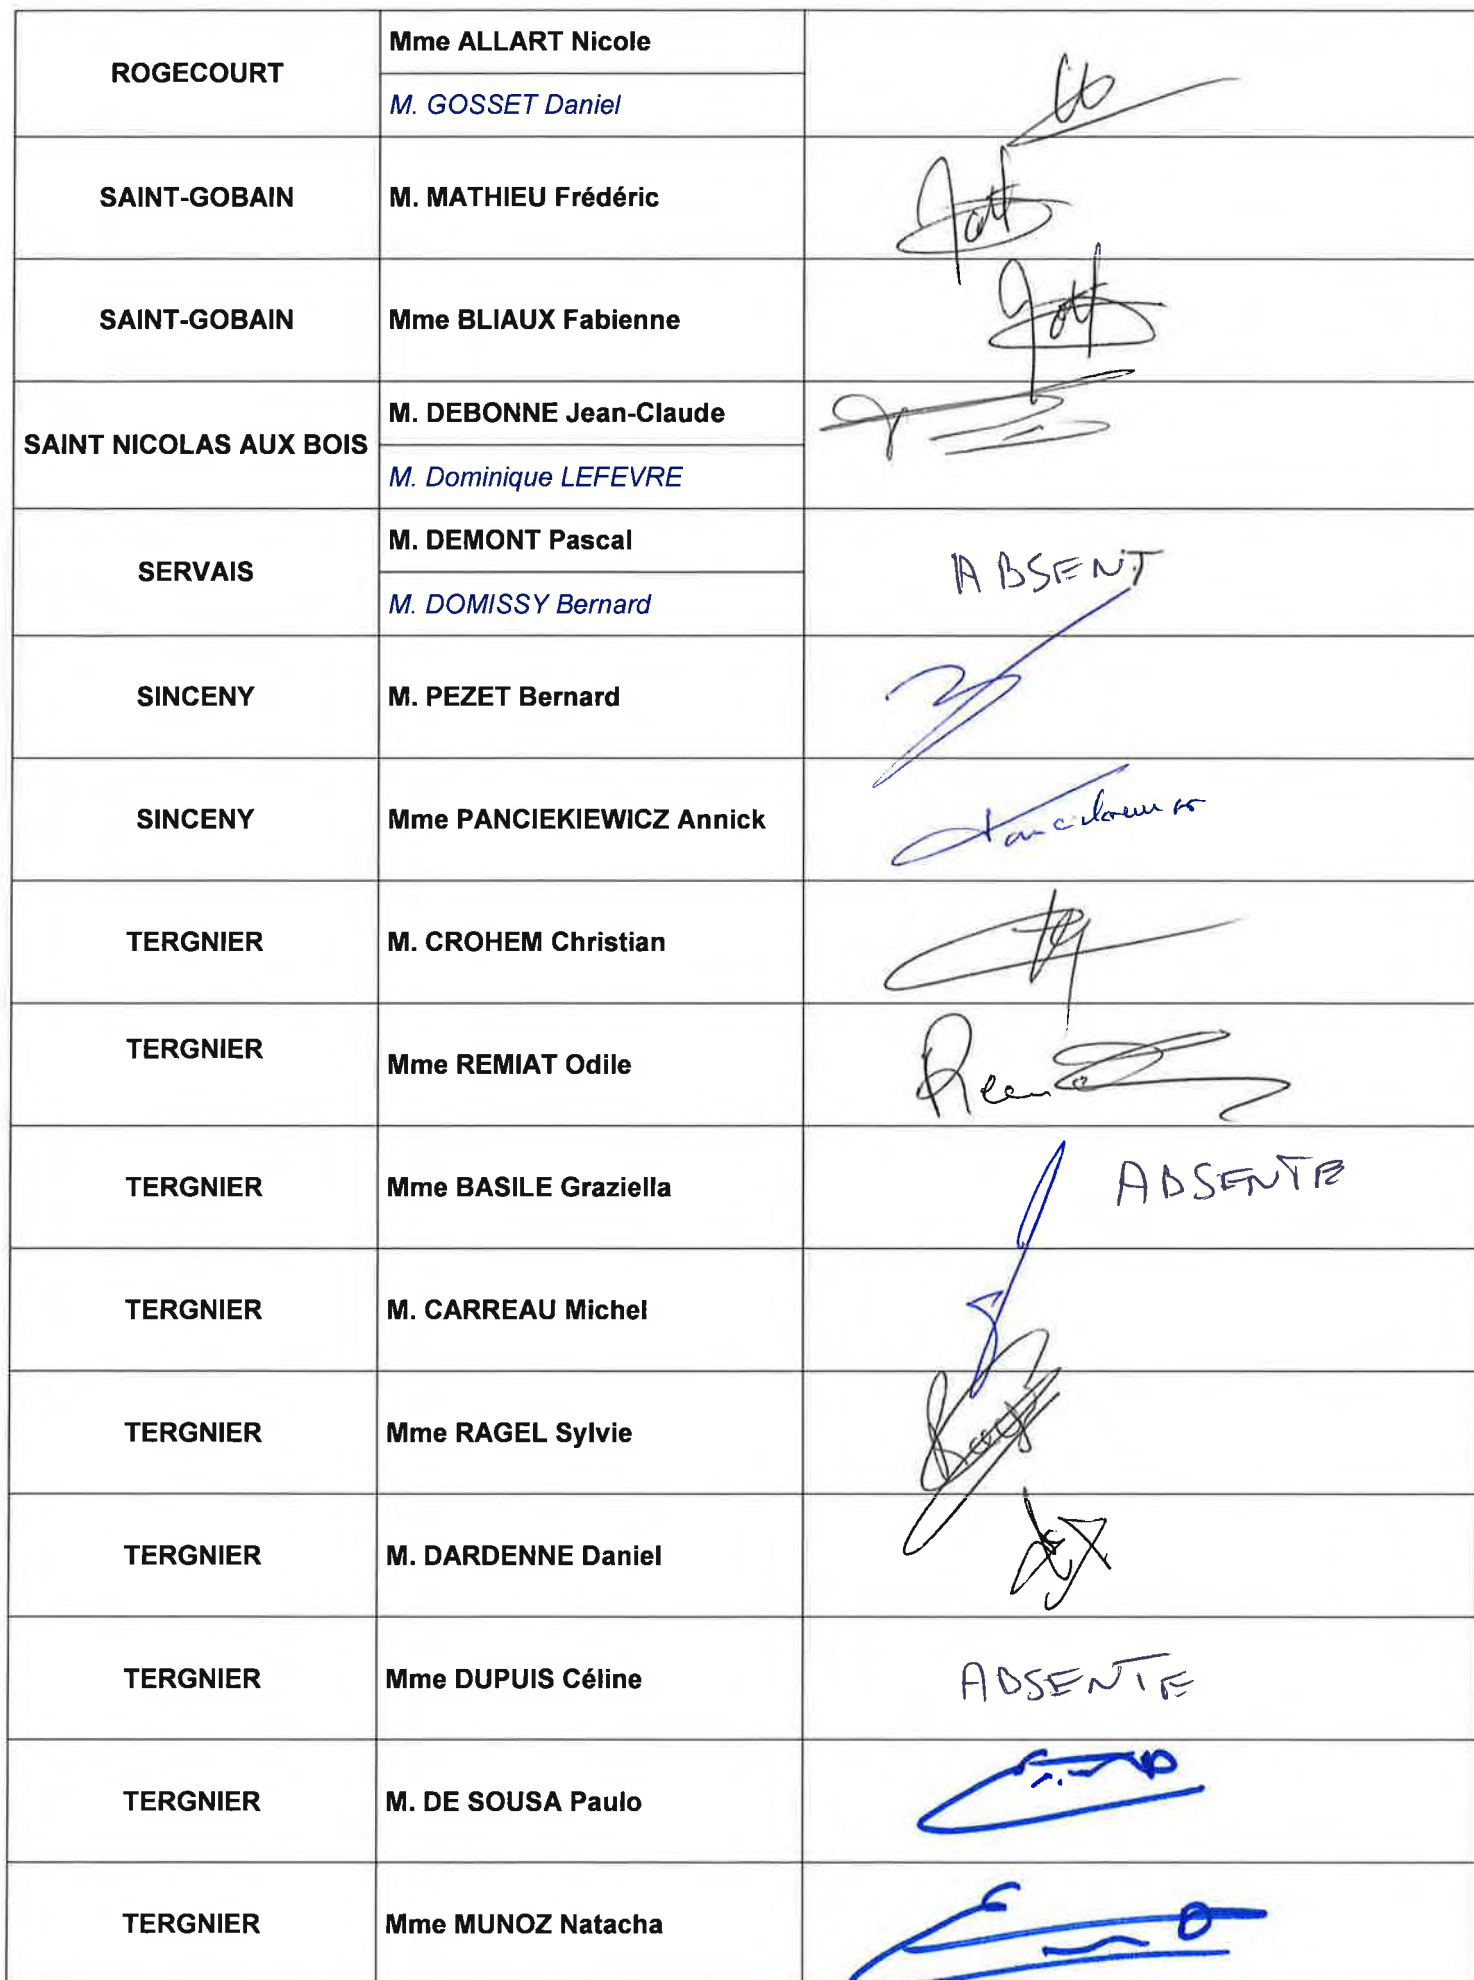 ROGECOURT
Mme ALLART Nicole
M. GOSSET Daniel
SAINT-GOBAIN
M. MATHIEU Frédéric
SAINT-GOBAIN
Mme BLIAUX Fabienne
SAINT NICOLAS AUX BOIS
M. DEBONNE Jean-Claude
M. Dominique LEFEVRE
SERVAIS
M. DEMONT Pascal
M. DOMISSY Bernard
ABSENT
SINCENY
M. PEZET Bernard
SINCENY
Mme PANCIEKIEWICZ Annick
TERGNIER
M. CROHEM Christian
TERGNIER
Mme REMIAT Odile
TERGNIER
Mme BASILE Graziella
ABSENTE
TERGNIER
M. CARREAU Michel
TERGNIER
Mme RAGEL Sylvie
TERGNIER
M. DARDENNE Daniel
TERGNIER
Mme DUPUIS Céline
ABSENTE
TERGNIER
M. DE SOUSA Paulo
TERGNIER
Mme MUNOZ Natacha